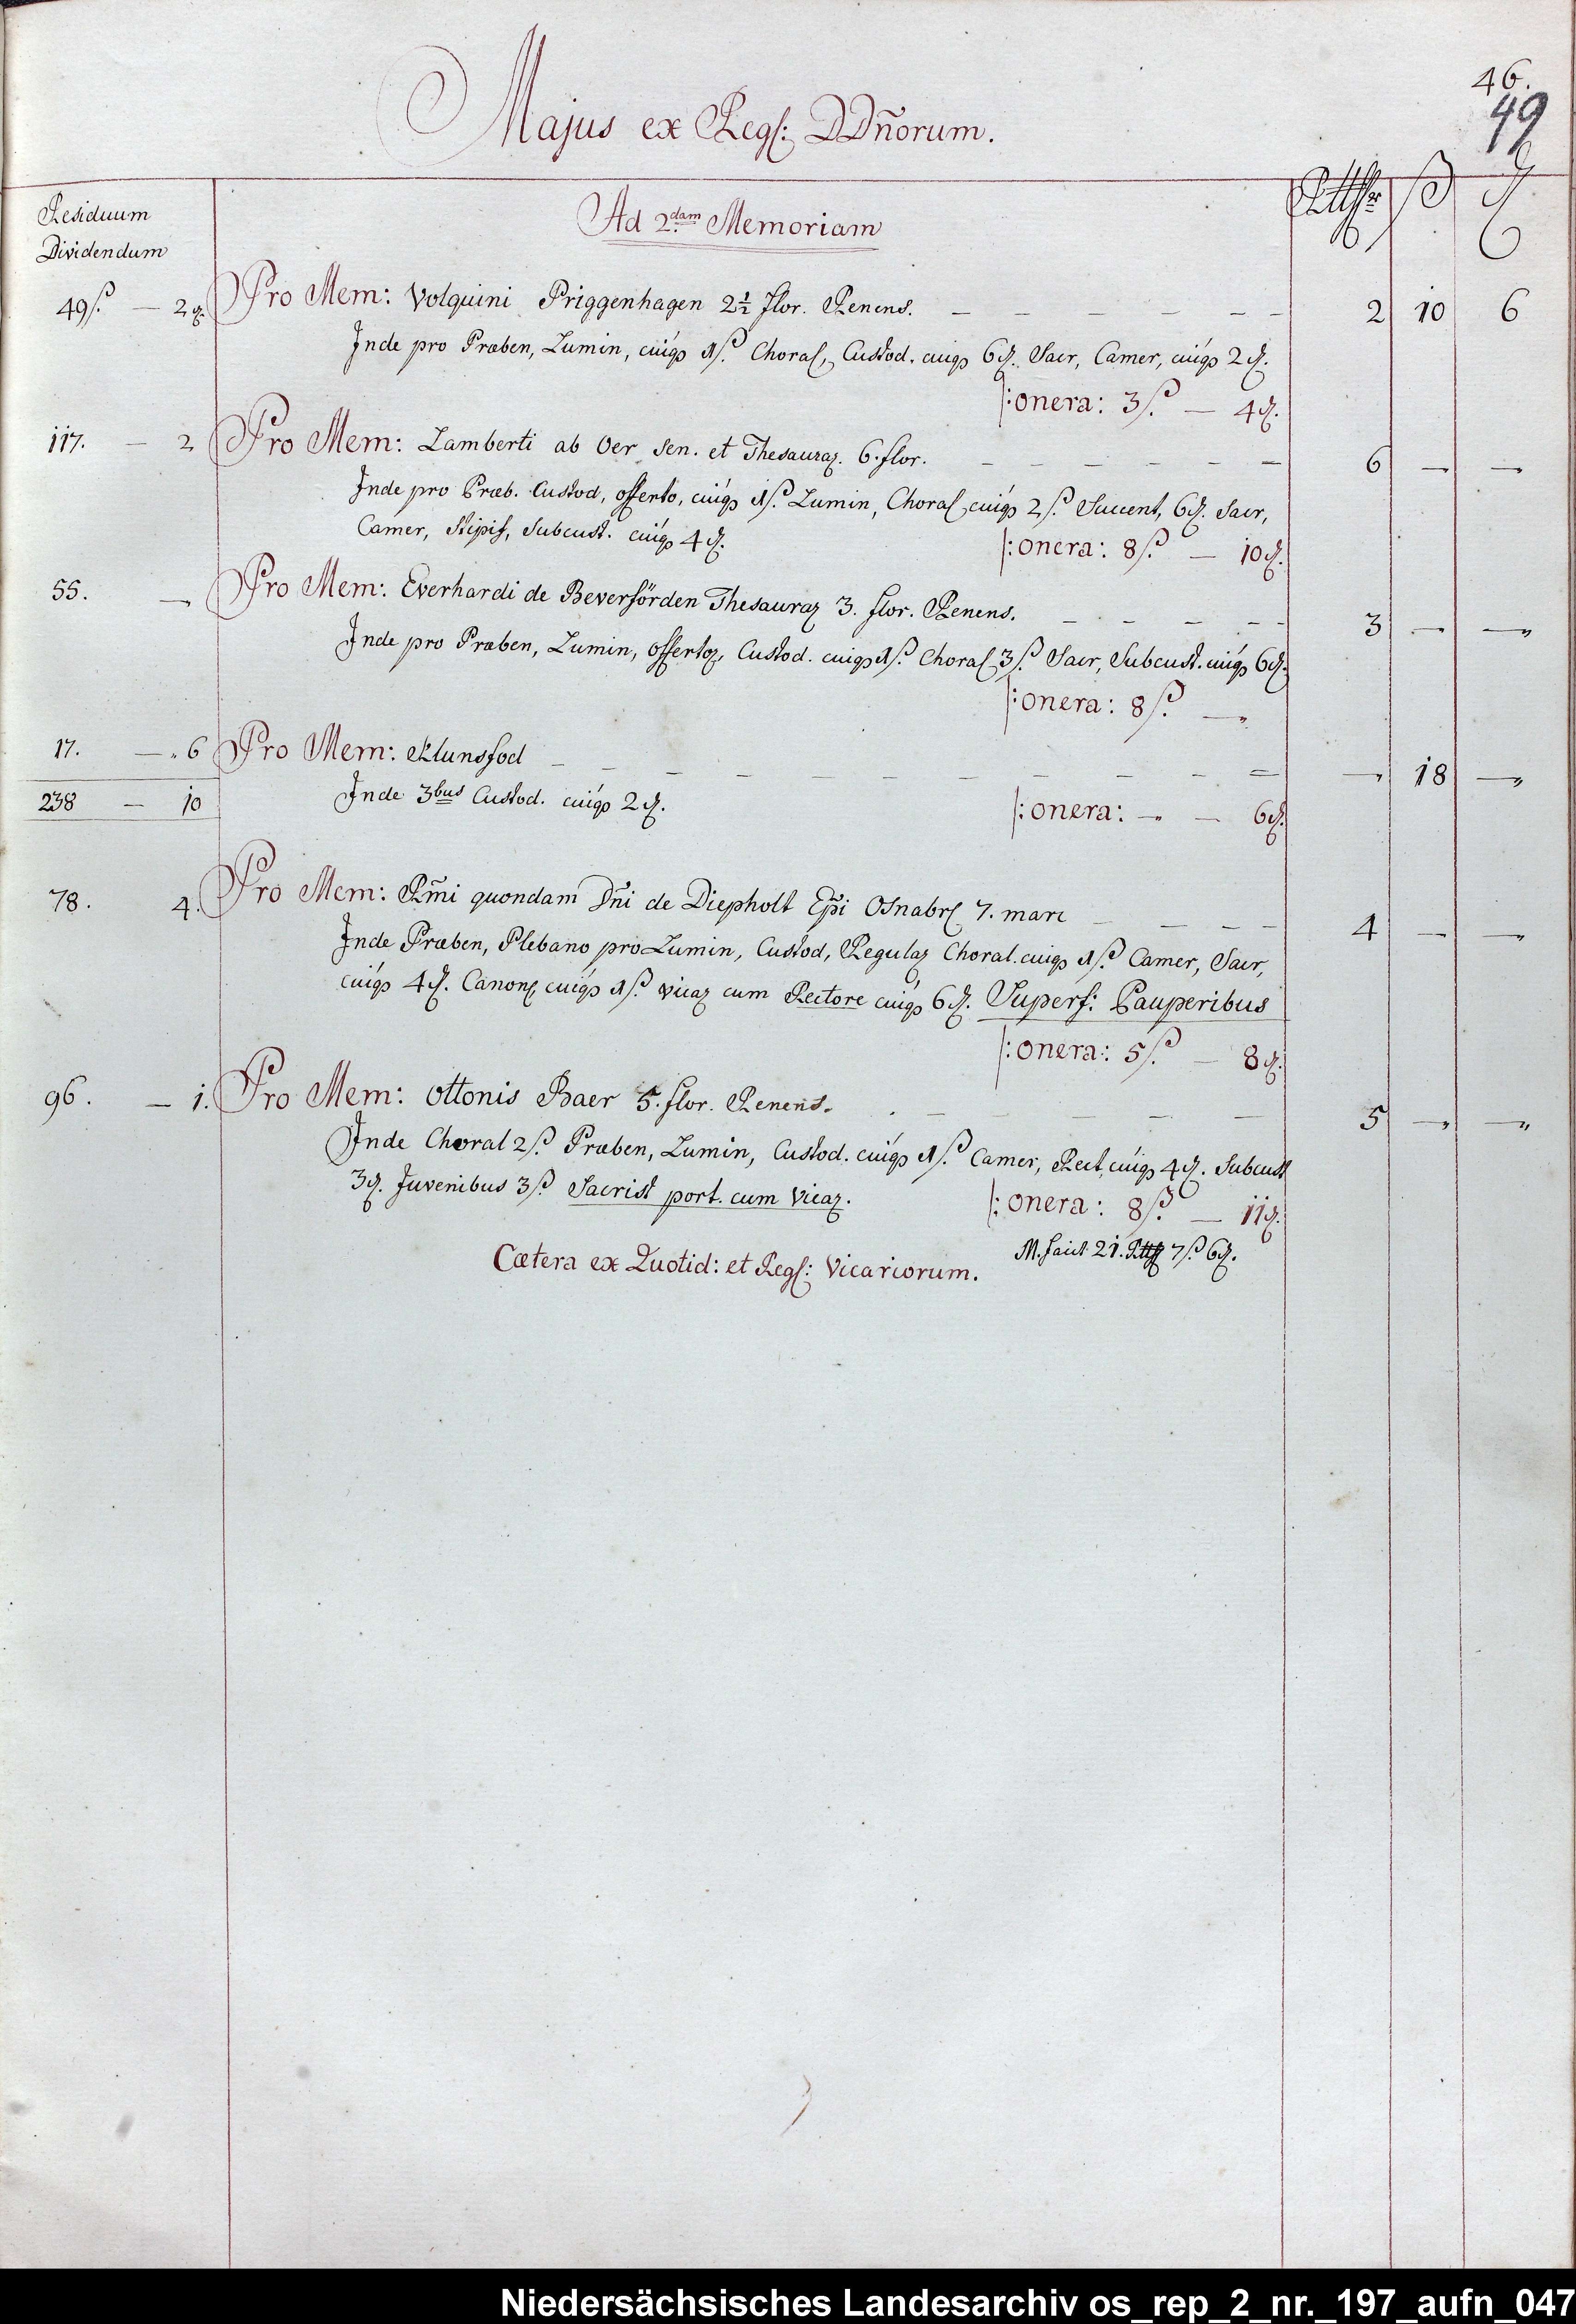 46.
49
Majus ex Regſ: DDn̄orum.
Residuum
Dividendum
Ad 2.dam Memoriam
Rtthlr ß ₰
49ß. — 2₰. Pro Mem: Volquini Priggenhagen 2½ flor. Renens. — — — — — — 2 10 6
Inde pro Præben, Lumin, cuiqs 1ß. Choral, Custod. cuiqs 6₰. Sacr, Camer, cuiqs 2₰.
|: onera: 3ß. — 4₰.
117. — 2 Pro Mem: Lamberti ab Oer Sen. et Thesaurar. 6. flor. — — — — — — 6 — —
Inde pro Præb. Custod, offerto, cuiqs 1ß. Lumin, Choral cuiqs 2ß. Succent, 6₰. Sacr,
Camer, Stipif, Subcust. cuiqs 4₰. |: onera: 8ß. — 10₰.
55. — Pro Mem: Everhardi de Beverförden Thesaurar 3. flor. Renens. — — — — — 3 — —
Inde pro Præben, Lumin, offertor, Custod. cuiqs 1ß. Choral 3ß. Sacr, Subcust. cuiqs 6₰.
|: onera: 8ß. —
17. — 6 Pro Mem: Klunsfod — — — — — — — — — — — 18 —
238 — 10 Inde 3bus Custod. cuiqs 2₰. |: onera: — — 6₰.
78. 4. Pro Mem: Rm̄i quondam Dn̄i de Diepholt Ep̄i Osnabrſ 7. marc — — — — 4 — —
Inde Præben, Plebano pro Lumin, Custod, Regular Choral. cuiqs 1ß. Camer, Sacr,
cuiqs 4₰. Canonc cuiqs 1ß. vicar cum Rectore cuiqs 6₰. Superf: Pauperibus
|: onera: 5ß. — 8₰.
96. — 1. Pro Mem: Ottonis Baer 5. flor. Renens. — — — — — 5 — —
Inde Choral 2ß. Præben, Lumin, Custod. cuiqs 1ß. Camer, Rect, cuiqs 4₰. Subcust
3₰. Juvenibus 3ß. Sacrist port. cum Vicar. |: onera: 8ß. — 11₰.
M. facit 21. Rtthl 7ß. 6₰.
Cætera ex Quotid: et Regſ: Vicariorum.
Niedersächsisches Landesarchiv os_rep_2_nr._197_aufn_047